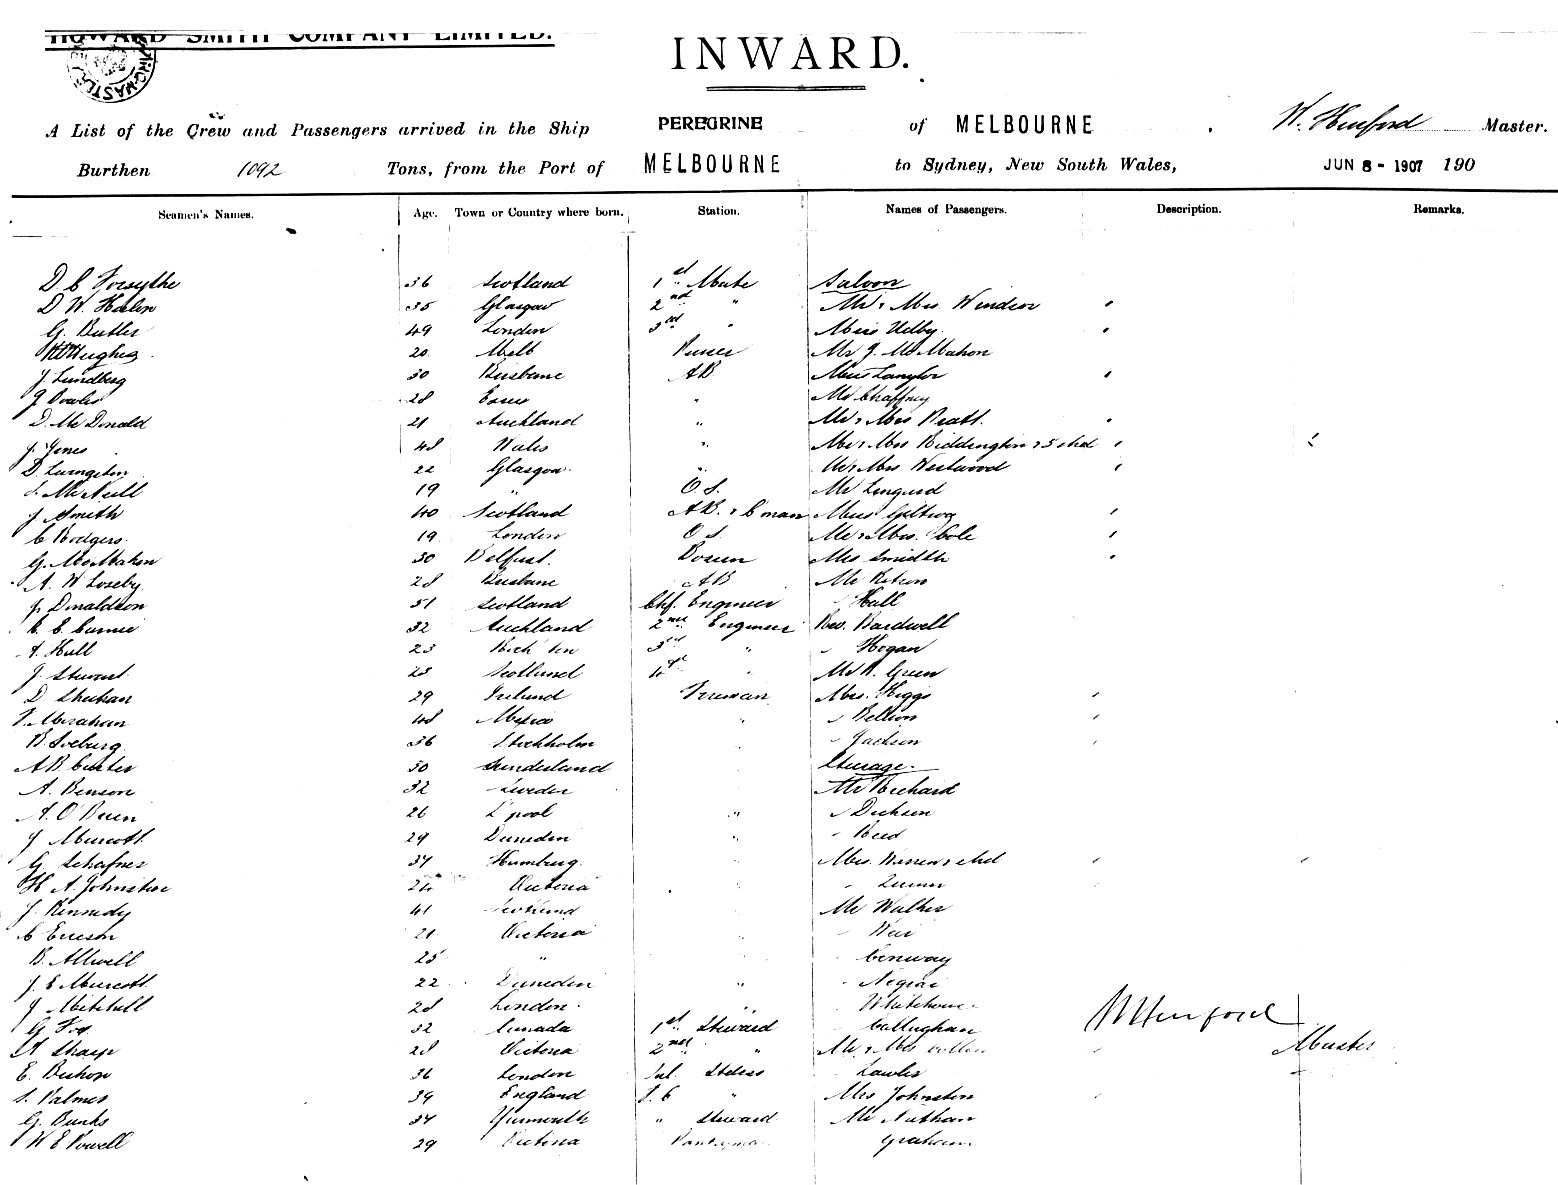 HOWARD SMITH COMPANY LIMITED.
INWARD.
A List of the Crew and Passengers arrived in the Ship PEREGRINE of MELBOURNE W. Hurford Master.
Burthen 1092 Tons, from the Port of MELBOURNE to Sydney, New South Wales, JUN 8 - 1907 190
Seamen's Names. Age. Town or Country where born. Station. Names of Passengers. Description. Remarks.
D. C Forsythe 36 Scotland 1st Mate Saloon
D W. 35 Glasgow 2nd " Mr & Mrs Windsor
G. Butler 49 London 3rd " Miss
Hughes 20 Melb Purser Mr J. McMahon
J. Lundberg 30 Brisbane AB Miss Langlor
J 28 Essex " Mr Chaffney
D. McDonald 21 Auckland " Mr & Mrs Pratt.
J. Jones 48 Wales " Mr & Mrs Biddington & 5 chd
D. Livingston 22 Glasgow " Mr & Mrs Westwood
McNeill 19 " O.S. Mr Lingard
J Smith 40 Scotland AB. & Miss
C Rodgers. 19 London O S. Mr & Mrs. Cole
G. McMahon 30 Belfast. Bosun Mrs Smidth
A. W Loseby 28 Brisbane AB Mr
J. Donaldson 51 Scotland Chf. Engineer " Hall
E. Currie 32 Auckland 2nd Engineer Rev. Bardwell
A. Hall 23 3rd " " Hogan
J. Stewart 23 Scotland 4th " Mr R. Green
D. Sheehan 29 Ireland Fireman Mrs. Higgs
Abraham 48 Mexico " "
B. Soeburg 36 Stockholm " " Jackson
A B. Carter 30 Sunderland Steerage.
A. Benson 32 Sweden Mr Richard
A. O'Brien 26 L'pool " " Dickson
J Murcott 29 Dunedin " " Reed
G. Schafner 34 Hamburg. Mrs. Warren & chd
H A. Johnston 24 Victoria " Quinn
J. Kennedy 41 Scotland Mr Walker
C Ericson 21 Victoria " Weir
B. Allwell 25 " " Conway
J. E Murcott 22 Dunedin " "
J Mitchell 28 London " Whitehouse
G Fox 32 Canada 1st Steward Callaghan W Hurford
Sharp 28 Victoria 2nd " Mr & Mrs Master
E. Bishop 36 London Sal. Stdess Lawler
S. Palmer 39 England F. C " Mrs Johnston
G. Banks 34 Yarmouth " Steward Mr Nathan
W E Powell 29 Victoria Pantryman Graham